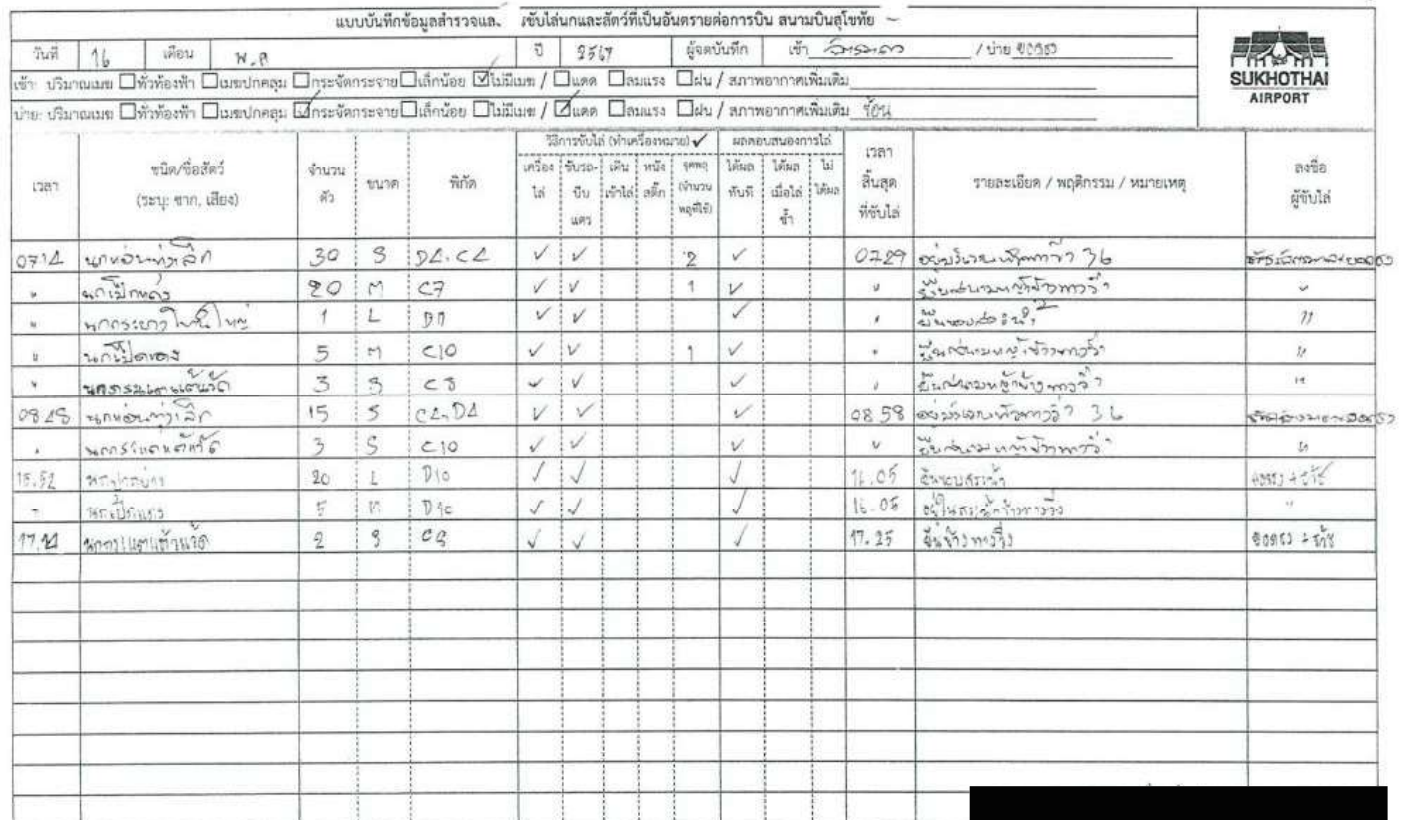 แบบบันทึกข้อมูลสำรวจและ ขับไล่นกและสัตว์ที่เป็นอันตรายต่อการบิน สนามบินสุโขทัย
วันที่ 16 เดือน พ.ค ปี 2567 ผู้จดบันทึก เช้า / บ่าย
SUKHOTHAI
AIRPORT
เช้า: ปริมาณเมฆ ☐ทั่วท้องฟ้า ☐เมฆปกคลุม ☐กระจัดกระจาย ☐เล็กน้อย ☑ไม่มีเมฆ / ☐แดด ☐ลมแรง ☐ฝน / สภาพอากาศเพิ่มเติม
บ่าย: ปริมาณเมฆ ☐ทั่วท้องฟ้า ☐เมฆปกคลุม ☑กระจัดกระจาย ☐เล็กน้อย ☐ไม่มีเมฆ / ☑แดด ☐ลมแรง ☐ฝน / สภาพอากาศเพิ่มเติม ร้อน
เวลา ชนิด/ชื่อสัตว์ (ระบุ: ซาก, เสียง) จำนวน ตัว ขนาด พิกัด วิธีการขับไล่ (ทำเครื่องหมาย) ✓ เครื่อง ไล่ ขับรถ-บีบ แตร เดิน เข้าไล่ หนัง สติ๊ก จุดพลุ (จำนวน พลุที่ใช้) ผลตอบสนองการไล่ ได้ผล ทันที ได้ผล เมื่อไล่ ซ้ำ ไม่ ได้ผล เวลา สิ้นสุด ที่ขับไล่ รายละเอียด / พฤติกรรม / หมายเหตุ ลงชื่อ ผู้ขับไล่
0714 นกแอ่นทุ่งเล็ก 30 S D4.C4 ✓ ✓ 2 ✓ 0729 อยู่บริเวณหัวทางวิ่ง 36
" นกเป็ดแดง 20 M C7 ✓ ✓ 1 ✓ " ยืนสนามหญ้าข้างทางวิ่ง "
" นกกระยางโทนใหญ่ 1 L ✓ ✓ ✓ " "
" นกเป็ดแดง 5 M C10 ✓ ✓ 1 ✓ " ยืนสนามหญ้าข้างทางวิ่ง "
" นกกระแตแต้แว้ด 3 S C8 ✓ ✓ ✓ " ยืนสนามหญ้าข้างทางวิ่ง "
0848 นกแอ่นทุ่งเล็ก 15 S C4,D4 ✓ ✓ ✓ 0858 อยู่บริเวณหัวทางวิ่ง 36
" นกกระแตแต้แว้ด 3 S C10 ✓ ✓ ✓ " ยืนสนามหญ้าข้างทางวิ่ง "
15.52 นกปากห่าง 20 L D10 ✓ ✓ ✓ 16.05 ยืนขอบสระน้ำ
" นกเป็ดแดง 5 M D10 ✓ ✓ ✓ 16.05 อยู่ในสระน้ำข้างทางวิ่ง "
17. นกกระแตแต้แว้ด 2 S C9 ✓ ✓ ✓ 17.25 ยืนข้างทางวิ่ง